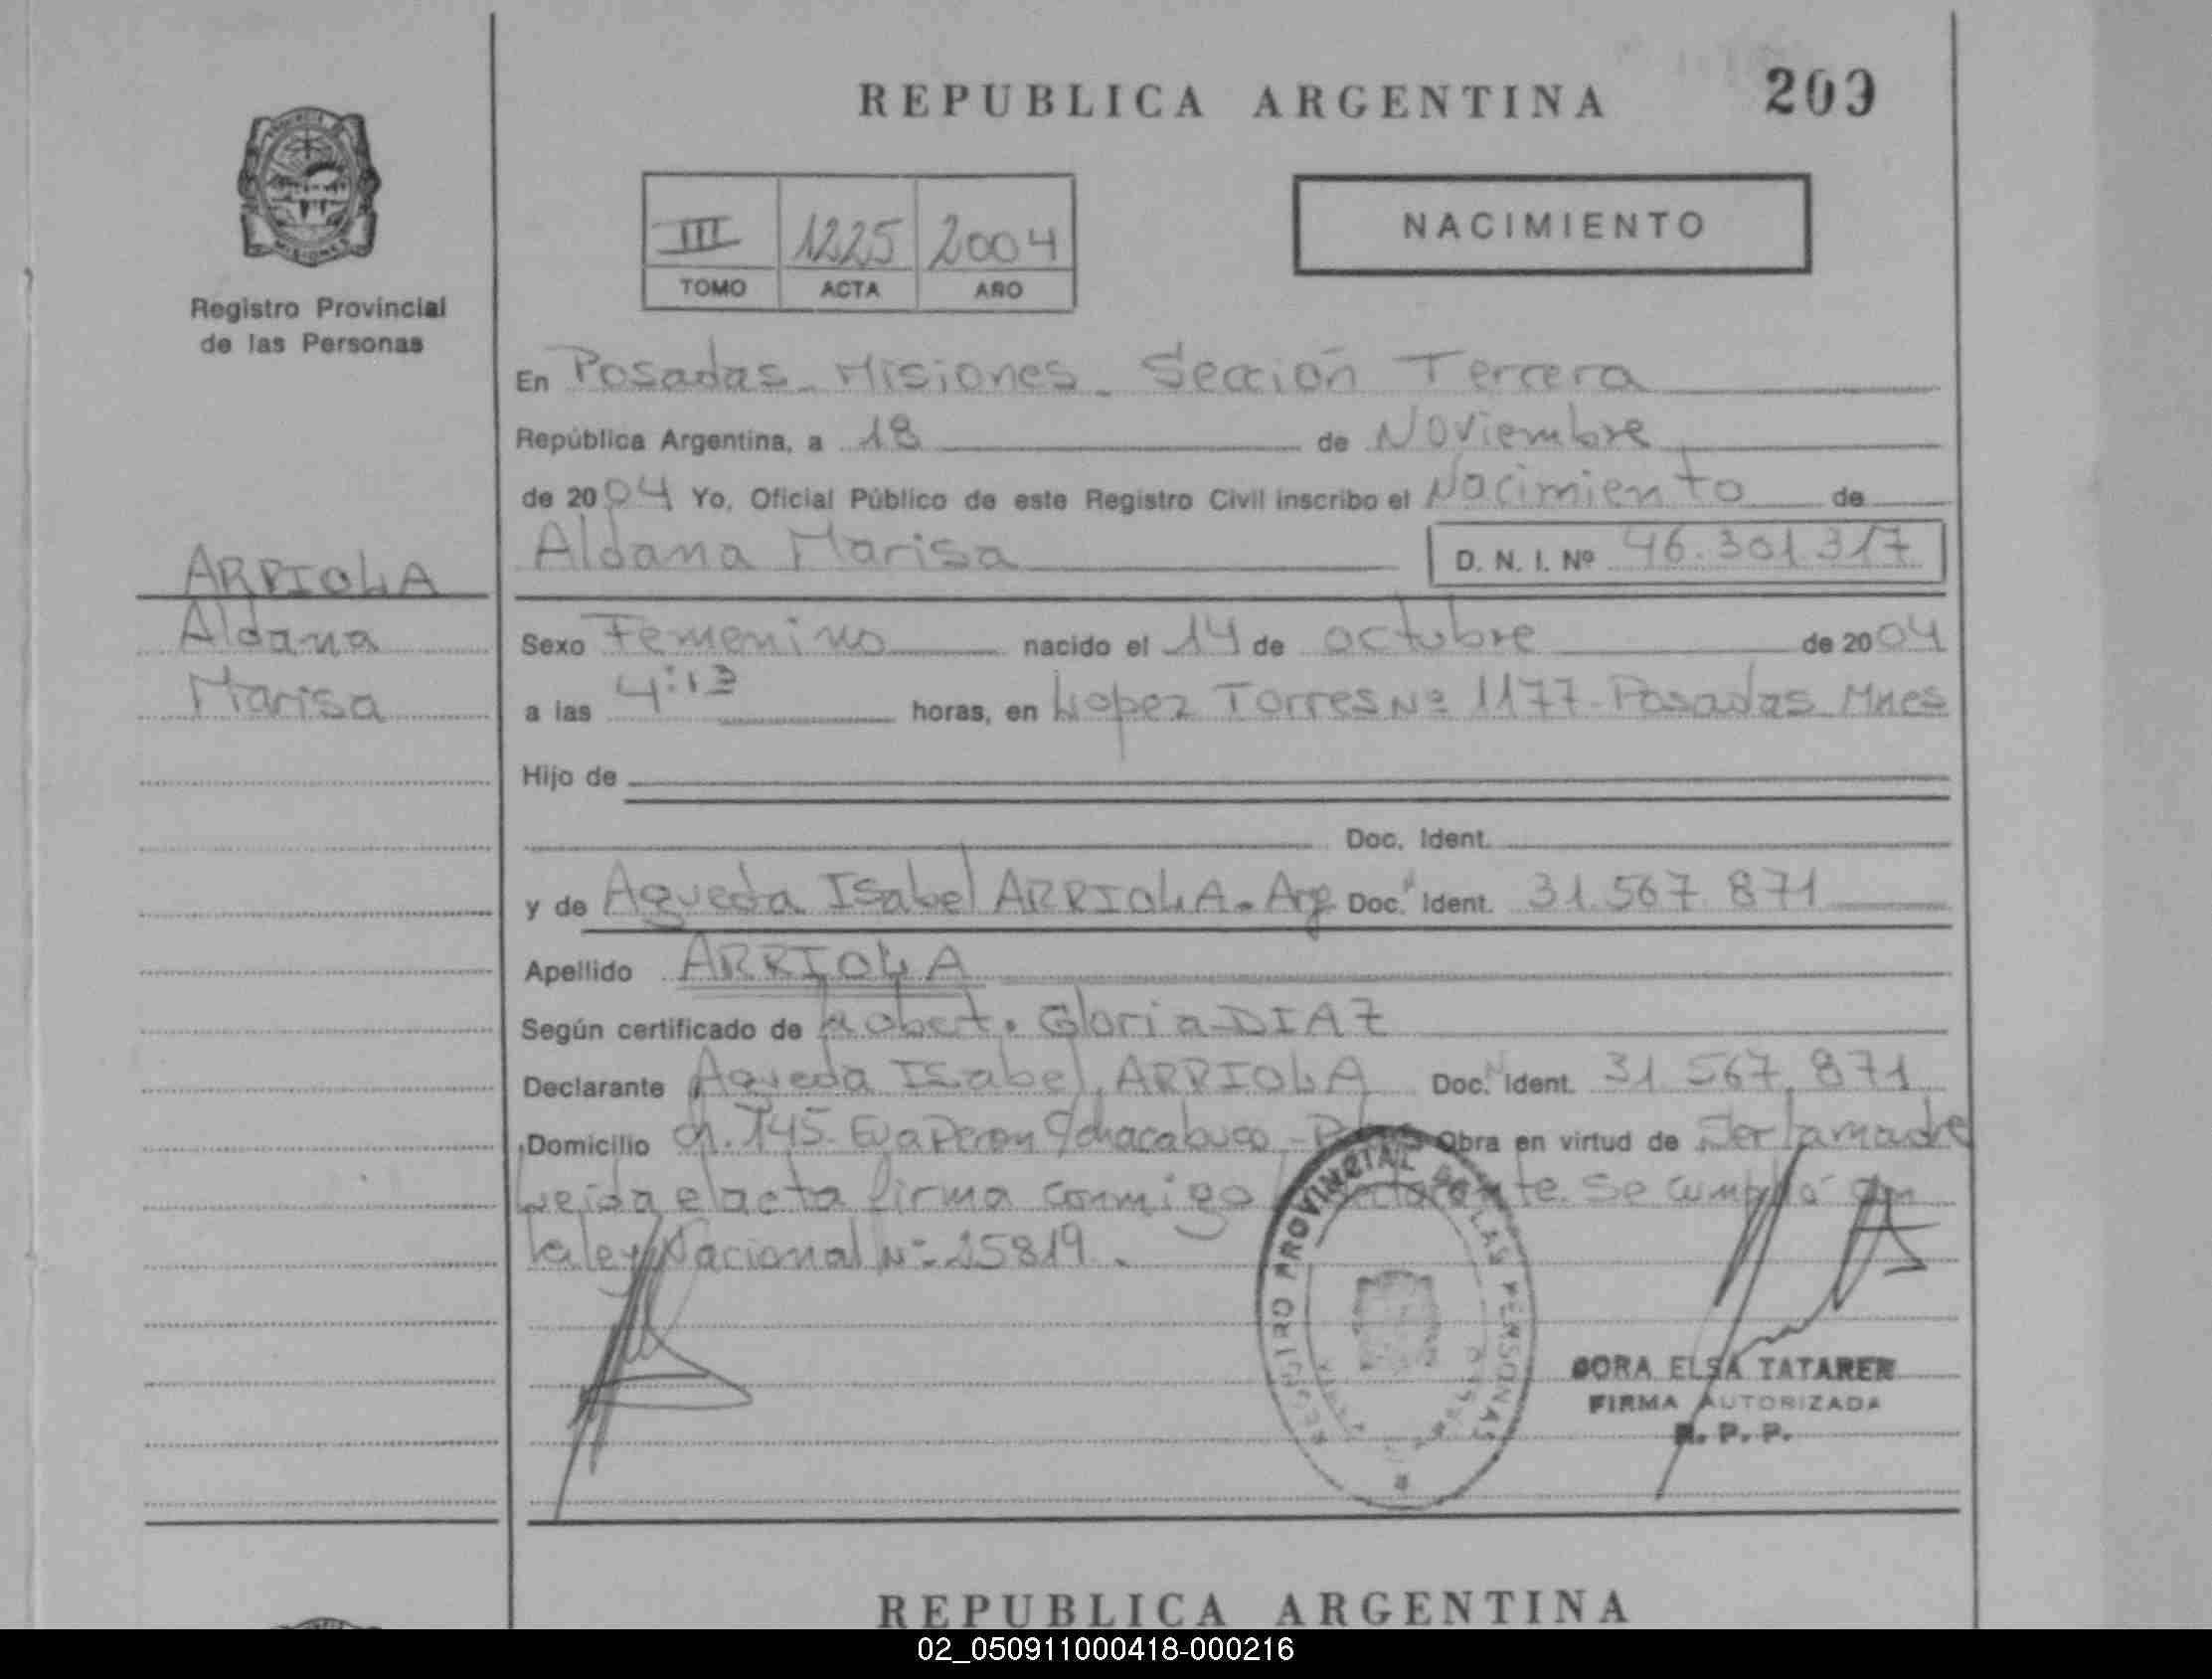 REPUBLICA ARGENTINA 209
PROVINCIA DE
MISIONES
Registro Provincial
de las Personas
III 1225 2004
TOMO ACTA AÑO
NACIMIENTO
En Posadas - Misiones - Sección Tercera
República Argentina, a 18 de Noviembre
de 2004 Yo, Oficial Público de este Registro Civil inscribo el Nacimiento de
Aldana Marisa D. N. I. Nº 46.301.317
ARRIOLA
Aldana
Marisa
Sexo Femenino nacido el 14 de octubre de 2004
a las 4:13 horas, en Lopez Torres Nº 1177 - Posadas Mnes
Hijo de
Doc. Ident.
y de Agueda Isabel ARRIOLA - Arg Doc. Ident. 31.567.871
Apellido ARRIOLA
Según certificado de Gloria DIAZ
Declarante Agueda Isabel ARRIOLA Doc. Ident. 31.567.871
Domicilio Ch. 145 - Eva Peron y chacabuco - Obra en virtud de Ser la madre
Leida el acta firma conmigo declarante. Se cumplió con
la ley Nacional Nº 25819.
REGISTRO PROVINCIAL DE LAS PERSONAS
DORA ELSA TATAREN
FIRMA AUTORIZADA
R. P. P.
REPUBLICA ARGENTINA
02_050911000418-000216